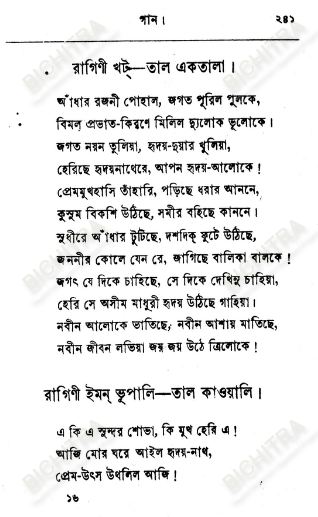 গান। ২৪১
রাগিণী খট্—তাল একতালা।
আঁধার রজনী পোহাল, জগত পূরিল পুলকে,
বিমল প্রভাত-কিরণে মিলিল দ্যুলোক ভূলোকে।
জগত নয়ন তুলিয়া, হৃদয়-দুয়ার খুলিয়া,
হেরিছে হৃদয়নাথেরে, আপন হৃদয়-আলোকে!
প্রেমমুখহাসি তাঁহারি, পড়িছে ধরার আননে,
কুসুম বিকশি উঠিছে, সমীর বহিছে কাননে।
সুধীরে আঁধার টুটিছে, দশদিক্ ফুটে উঠিছে,
জননীর কোলে যেন রে, জাগিছে বালিকা বালকে!
জগৎ যে দিকে চাহিছে, সে দিকে দেখিনু চাহিয়া,
হেরি সে অসীম মাধুরী হৃদয় উঠিছে গাহিয়া।
নবীন আলোকে ভাতিছে, নবীন আশায় মাতিছে,
নবীন জীবন লভিয়া জয় জয় উঠে ত্রিলোকে!
রাগিণী ইমন্ ভূপালি—তাল কাওয়ালি।
এ কি এ সুন্দর শোভা, কি মুখ হেরি এ!
আজি মোর ঘরে আইল হৃদয়-নাথ,
প্রেম-উৎস উথলিল আজি!
১৬
BICHITRA
BICHITRA
BICHITRA
BICHITRA
BICHITRA
BICHITRA